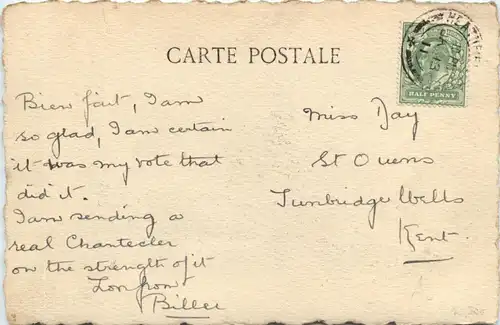 CARTE POSTALE
HALF PENNY
Bien fait, I am
so glad, I am certain
it was my vote that
did it.
I am sending a
real Chantecler
on the strength of it
from
Billee
Miss Day
St Owens
Tunbridge Wells
Kent.